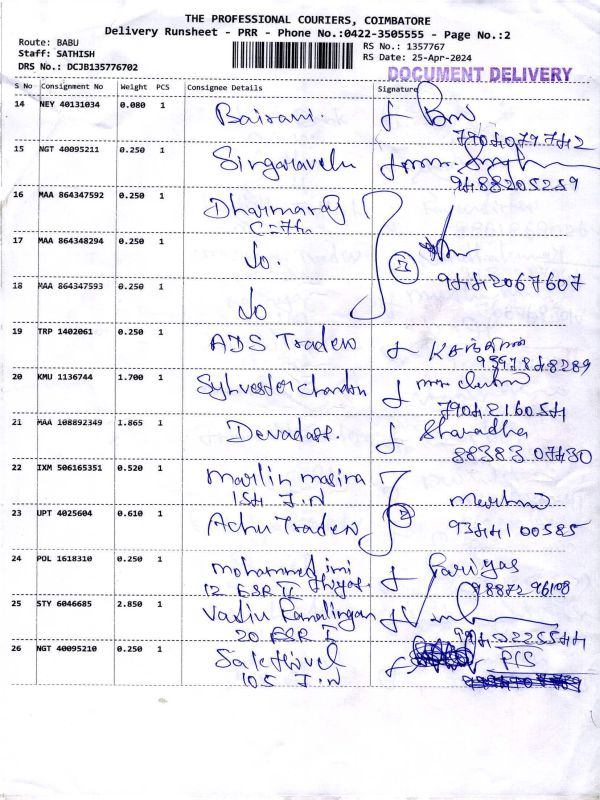 THE PROFESSIONAL COURIERS, COIMBATORE
Delivery Runsheet - PRR - Phone No.:0422-3505555 - Page No.:2
Route: BABU
Staff: SATHISH
DRS No.: DCJB135776702
RS No.: 1357767
RS Date: 25-Apr-2024
DOCUMENT DELIVERY
S No Consignment No Weight PCS Consignee Details Signature
14 NEY 40131034 0.080 1 Bairavi.
15 NGT 40095211 0.250 1 Singaravelu
9488205259
16 MAA 864347592 0.250 1 Dharmaraj
17 MAA 864348294 0.250 1 Do. 3
9442067607
18 MAA 864347593 0.250 1 Do
19 TRP 1402061 0.250 1 ADS Traders
20 KMU 1136744 1.700 1 Sylvester Chandran
7904216054
21 MAA 108892349 1.865 1 Devadass. Sharadha
88383 07430
22 IXM 506165351 0.520 1 Marlin masira
154 J.N
23 UPT 4025604 0.610 1 Achu Traders 2
93441 00585
24 POL 1618310 0.250 1 mohammed Fariyas
12 ESR II
25 STY 6046685 2.850 1 Ramalingan
20 ESR I
26 NGT 40095210 0.250 1
105 J.N